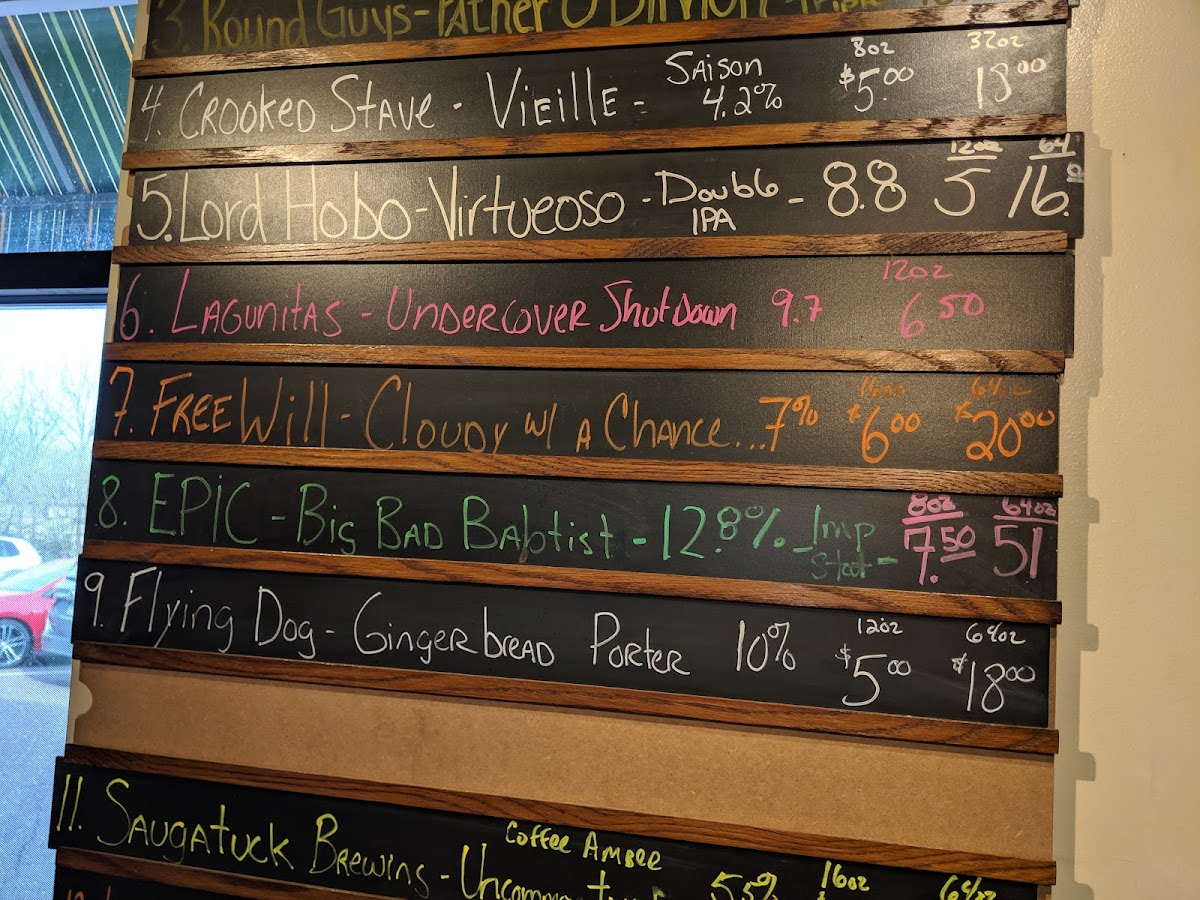 3. Round Guys - Father O'
4. Crooked Stave - Vieille - Saison 4.2% 8oz $5.00 32oz 18.00
5. Lord Hobo - Virtueoso - Double IPA - 8.8 12oz 5 64 16.
6. Lagunitas - Undercover Shutdown 9.7 12oz 6.50
7. Free Will - Cloudy w/ a Chance... 7% 16oz $6.00 64oz $20.00
8. EPIC - Big Bad Babtist - 12.8% - Imp Stout - 8oz 7.50 64oz 51
9. Flying Dog - Gingerbread Porter 10% 12oz $5.00 64oz $18.00
11. Saugatuck Brewing - Coffee Amber 5.5% 16oz 64oz